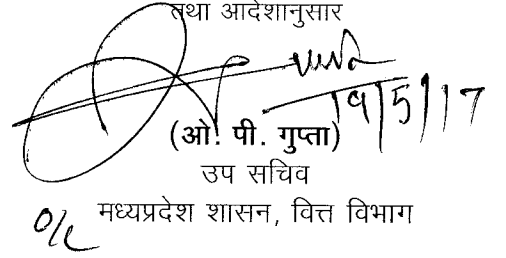 तथा आदेशानुसार
19/5/17
(ओ. पी. गुप्ता)
उप सचिव
मध्यप्रदेश शासन, वित्त विभाग
O/C